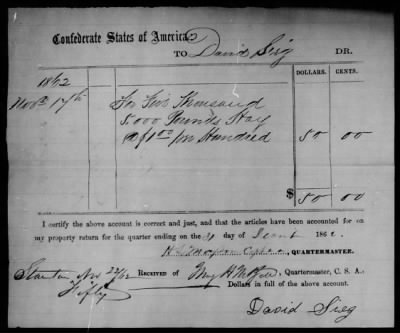 Confederate States of America,
TO David Sieg DR.
DOLLARS. CENTS.
1862
Nov 17th For Five Thousand
5.000 Pounds Hay
@ $1.00 per Hundred 50 00
$ 50 00
I certify the above account is correct and just, and that the articles have been accounted for on
my property return for the quarter ending on the 31 day of 186
QUARTERMASTER.
Nov RECEIVED OF Quartermaster, C. S. A.
Fifty Dollars in full of the above account.
David Sieg